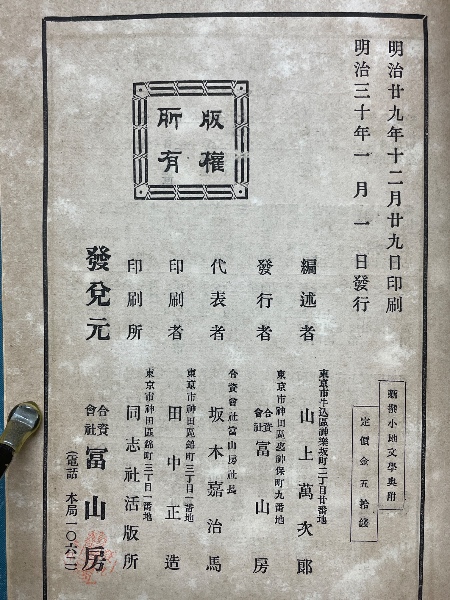 明治廿九年十二月廿九日印刷
明治三十年一月一日發行
定價金五拾錢
版權
所有
編述者
東京市牛込區神樂坂町二丁目廿番地
山上萬次郎
發行者
東京市神田區裏神保町九番地
合資會社 冨山房
代表者
合資會社冨山房社長
坂本嘉治馬
印刷者
東京市神田區錦町三丁目一番地
田中正造
印刷所
東京市神田區錦町三丁目一番地
同志社活版所
發兌元
合資會社 冨山房
(電話 本局一〇六二)